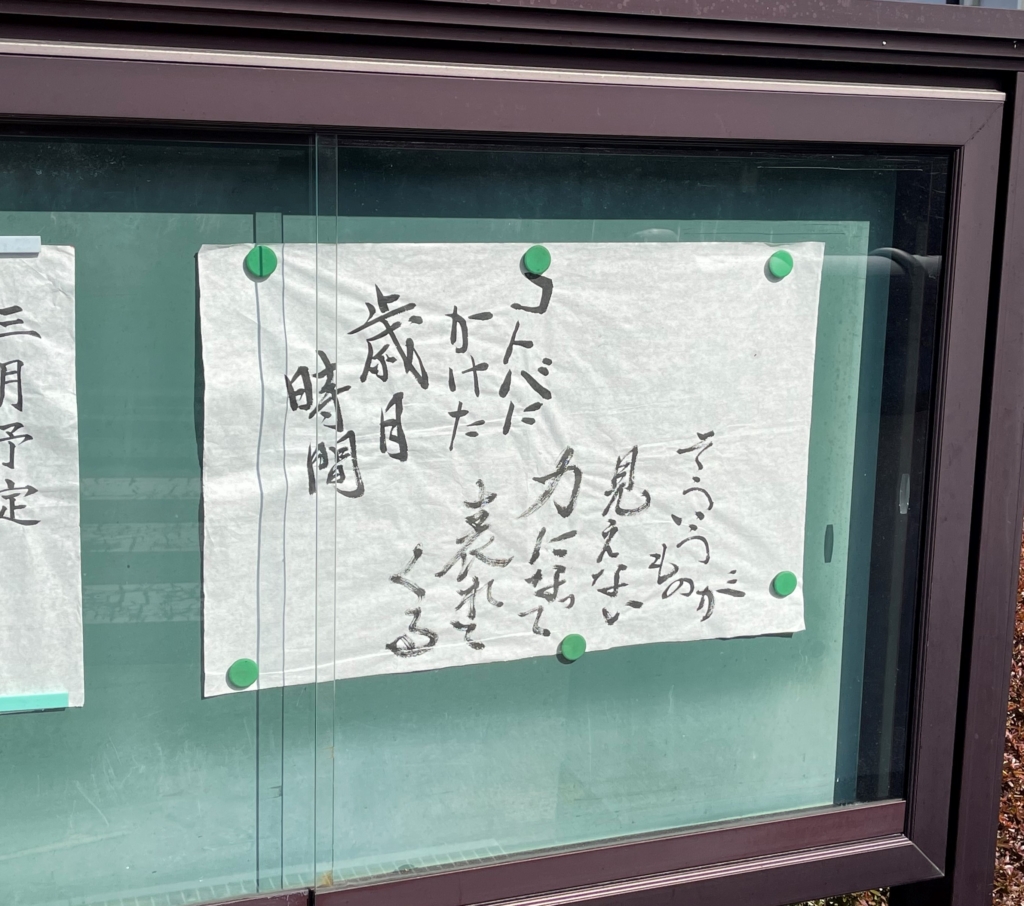 コトバに
かけた
歳月
時間
そういう
ものが
見えない
力になって
表れて
くる
三月予定